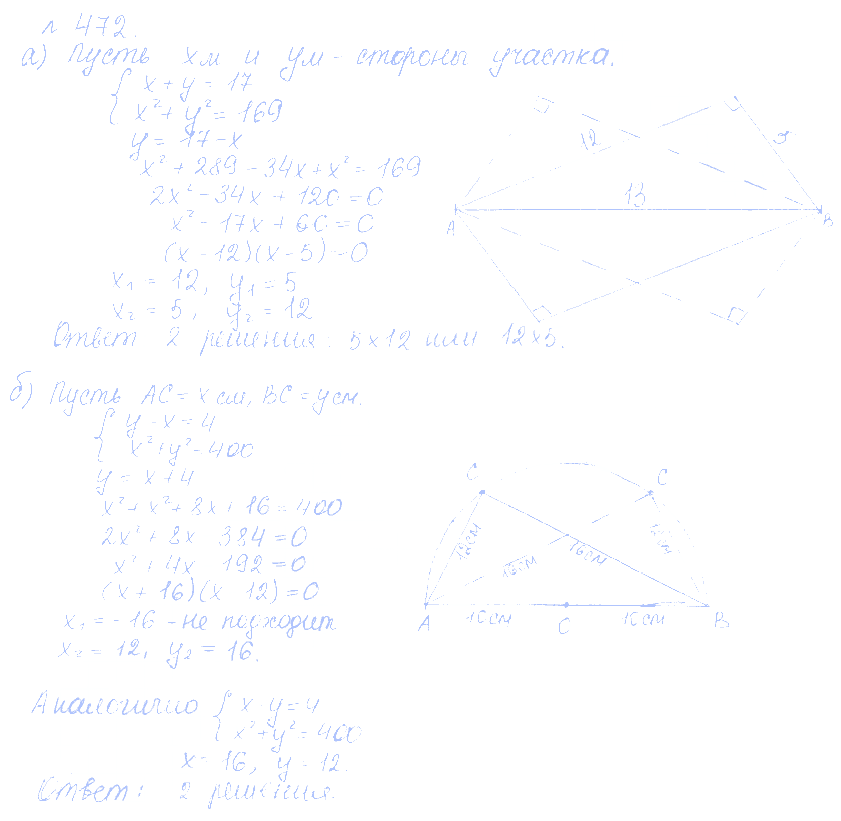 № 472.
а) Пусть x м и y м - стороны участка.
x + y = 17
x² + y² = 169
y = 17 - x
x² + 289 - 34x + x² = 169
2x² - 34x + 120 = 0
x² - 17x + 60 = 0
(x - 12)(x - 5) = 0
x₁ = 12, y₁ = 5
x₂ = 5, y₂ = 12
Ответ 2 решения: 5x12 или 12x5.
12
5
13
A
B
б) Пусть AC = x см, BC = y см.
y - x = 4
x² + y² = 400
y = x + 4
x² + x² + 8x + 16 = 400
2x² + 8x 384 = 0
x² + 4x 192 = 0
(x + 16)(x 12) = 0
x₁ = - 16 - не подходит
x₂ = 12, y₂ = 16.
C
C
12см
16см
16см
12см
A
10см
C
10см
B
Аналогично x y = 4
x² + y² = 400
x = 16, y = 12.
Ответ: 2 решения.